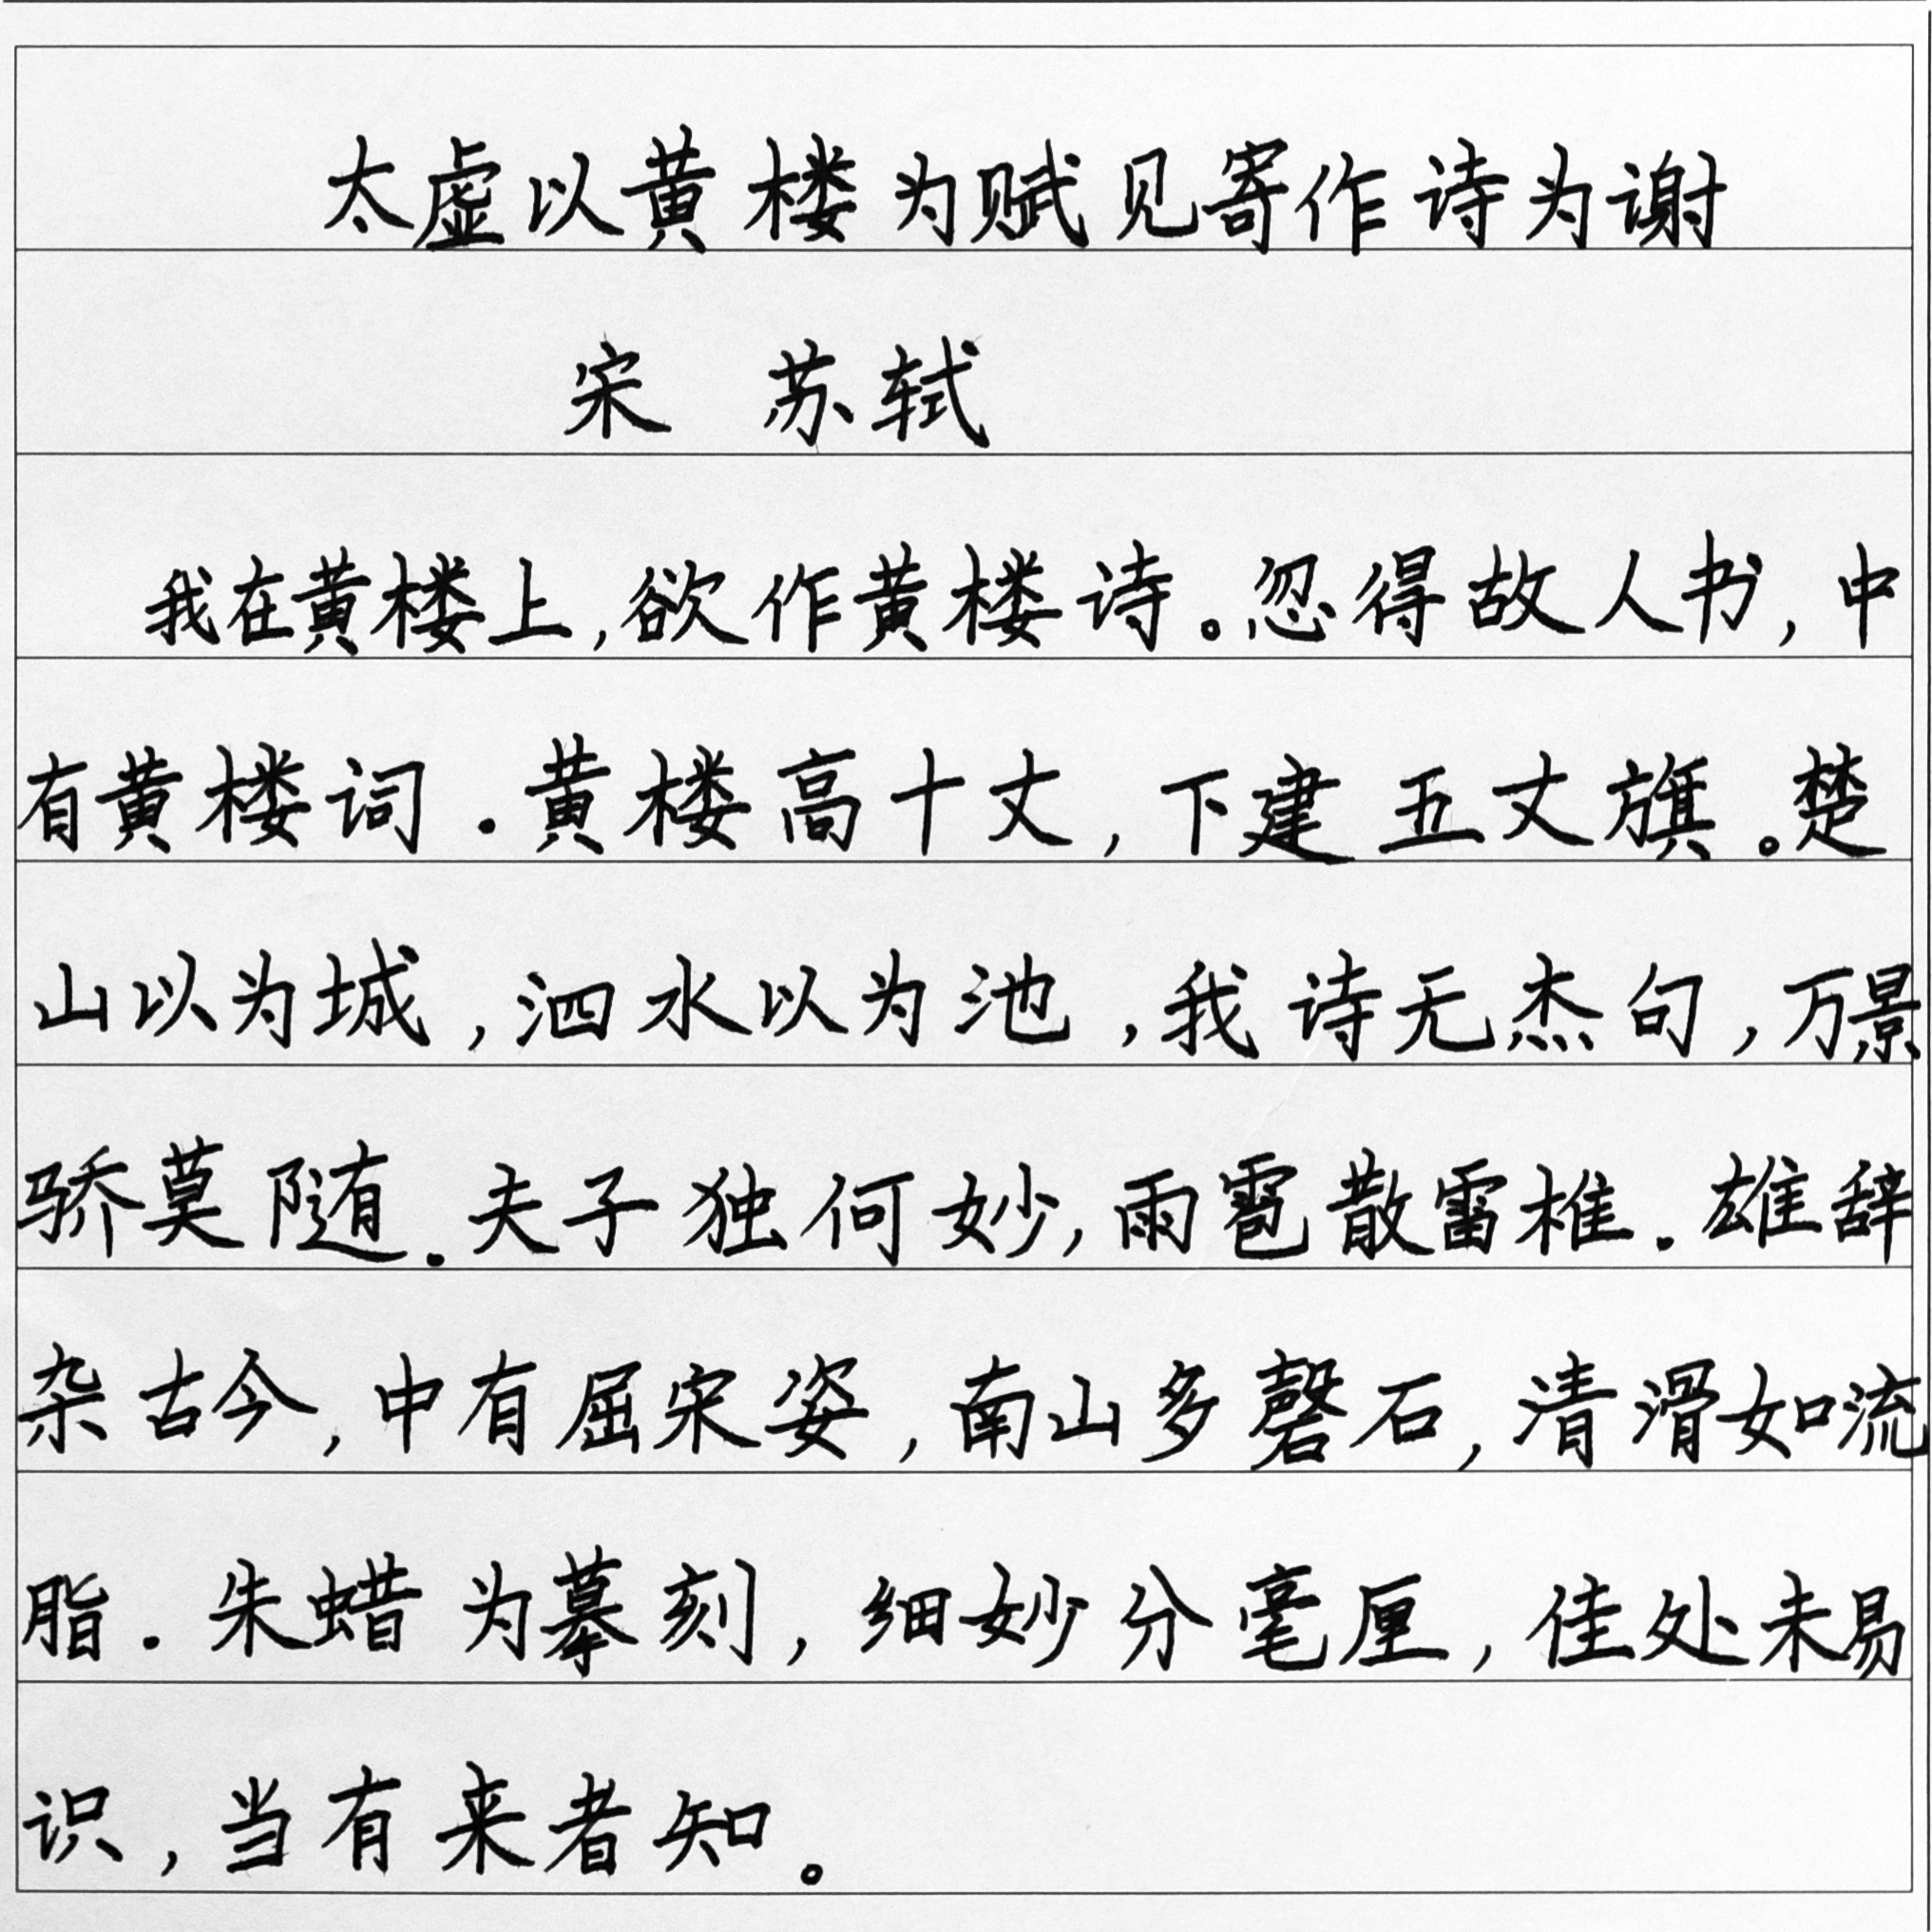 太虚以黄楼为赋见寄作诗为谢
宋 苏轼
我在黄楼上,欲作黄楼诗。忽得故人书,中
有黄楼词.黄楼高十丈,下建五丈旗。楚
山以为城,泗水以为池,我诗无杰句,万景
骄莫随.夫子独何妙,雨雹散雷椎.雄辞
杂古今,中有屈宋姿,南山多磬石,清滑如流
脂.朱蜡为摹刻,细妙分毫厘,佳处未易
识,当有来者知。